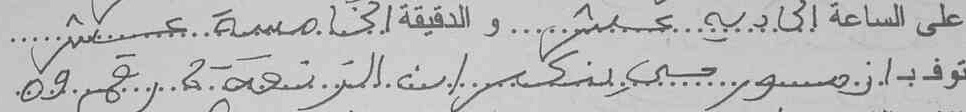 على الساعة الحادية عشر و الدقيقة الخامسة عشر
توفي بـ ازمور حي بنكيران الزنقة 2 رقم 09